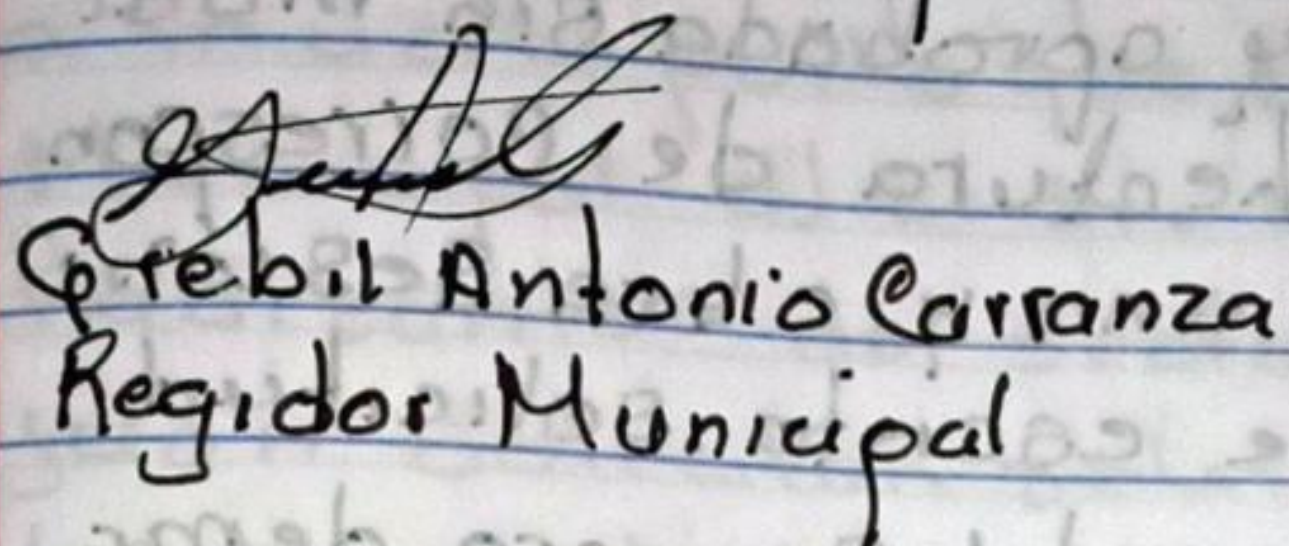 Grebil Antonio Carranza
Regidor Municipal